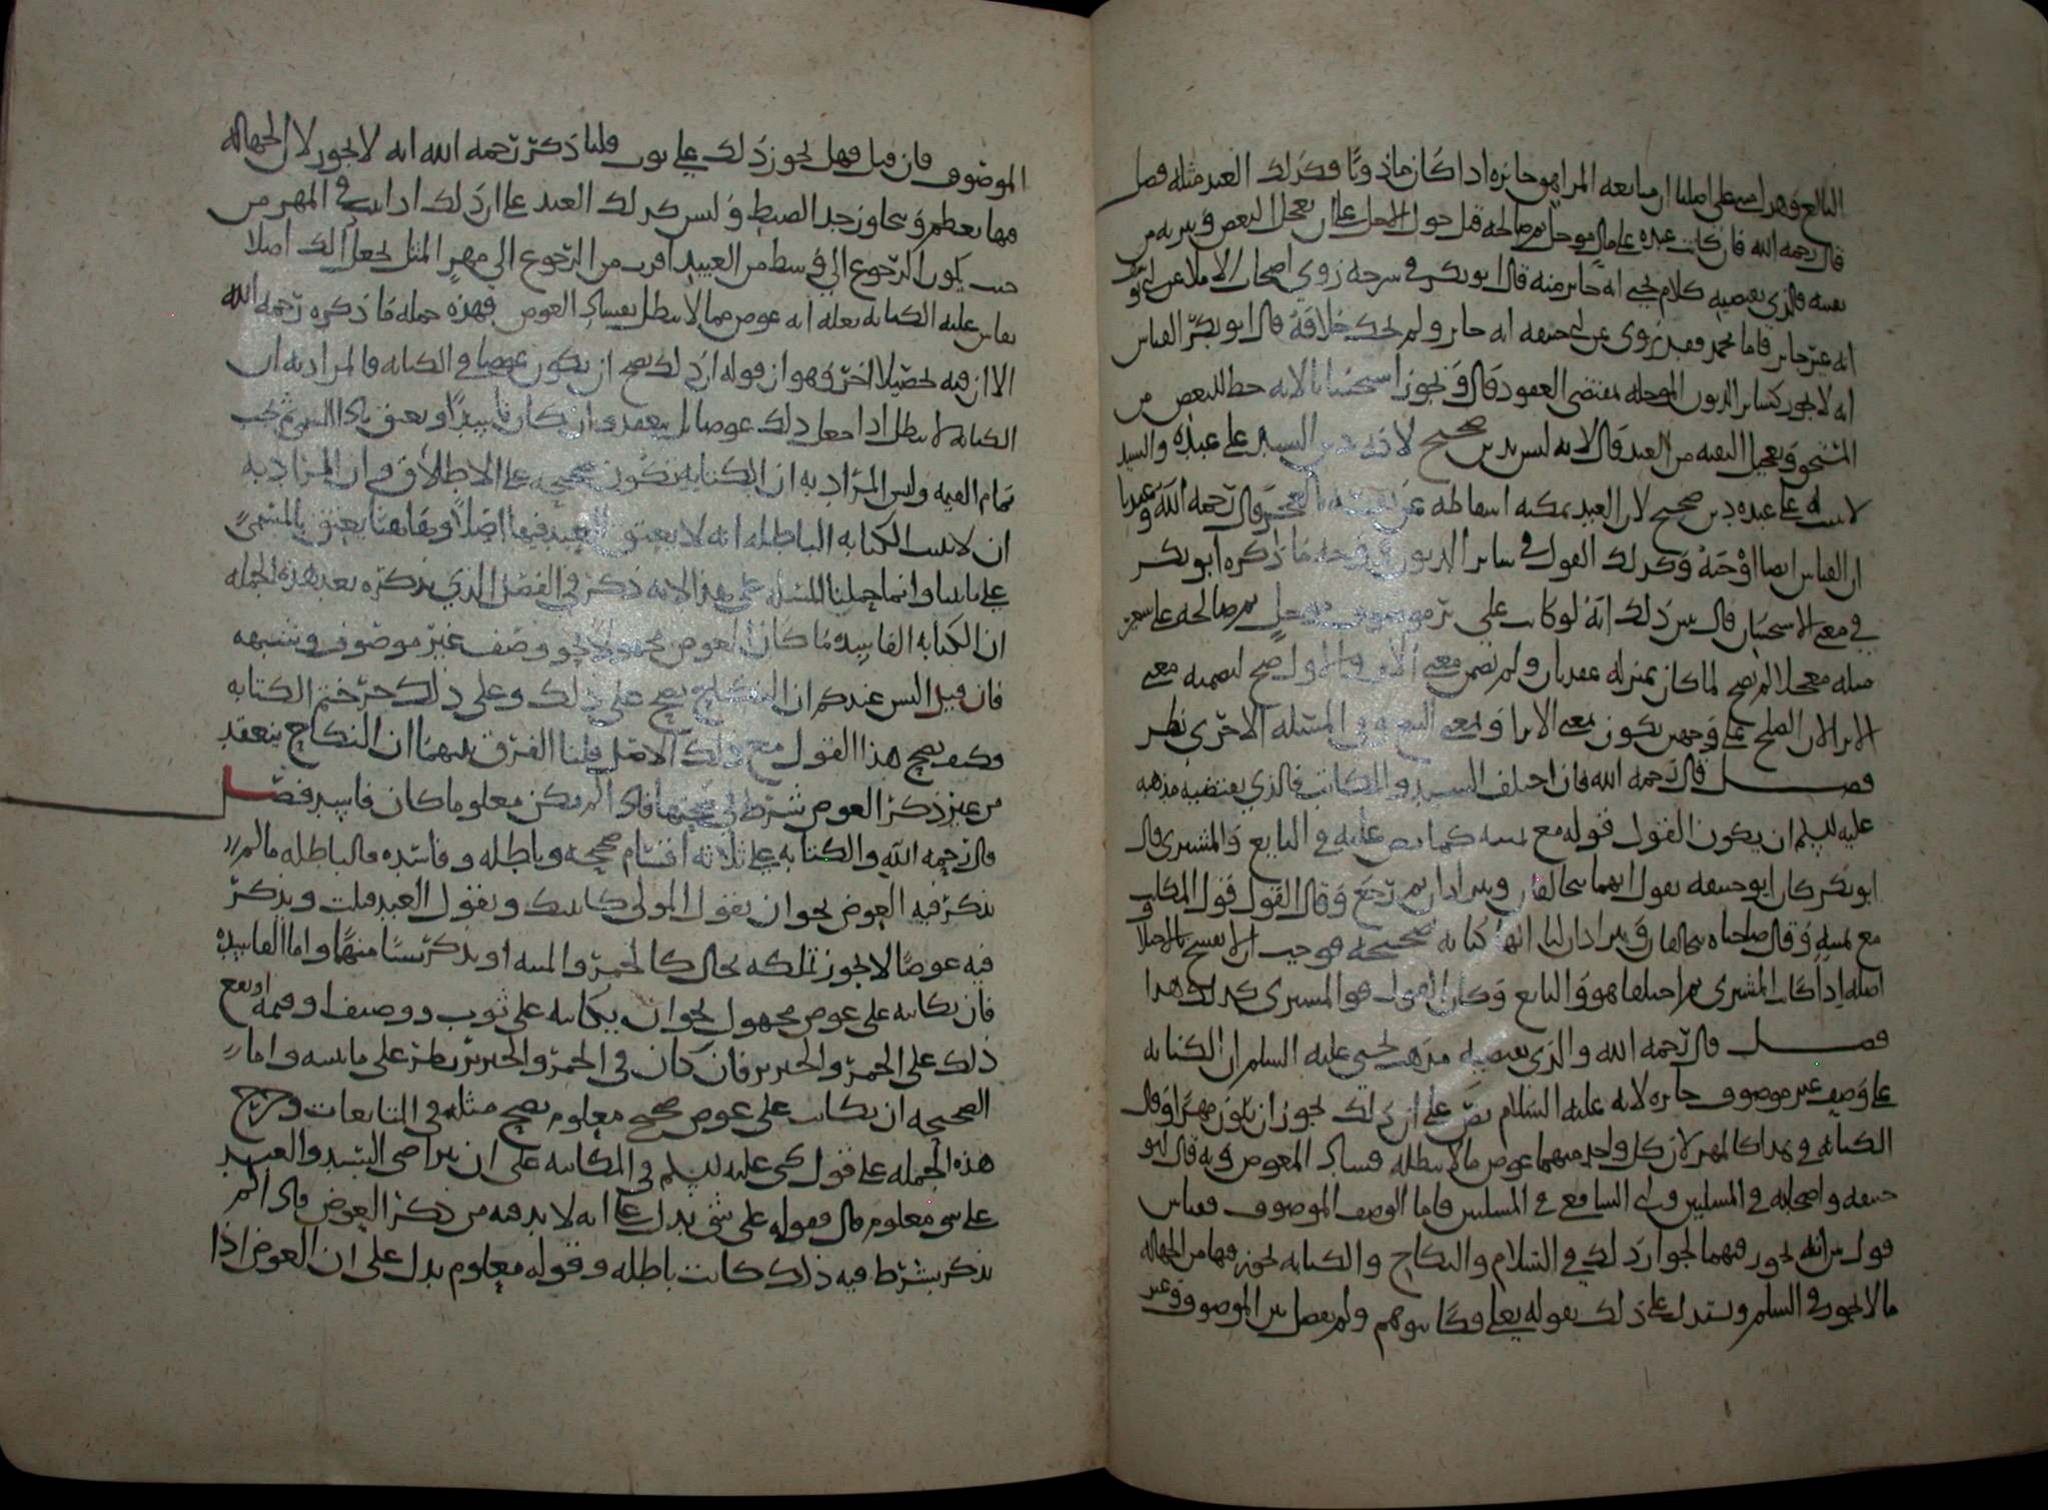 البالغ وهو اصله على اصلنا ان مبايعه المراهق جائزه اذا كان ماذونا وكذلك العبد مثله فصل
قال رحمه الله فان كاتب عبده على مال موجل ثم صالحه قبل حلول الاجل على ان يعجل البعض ويبريه من
بقيته فالذي يقتضيه كلام يحيى انه جائز منه قال ابو بكر في شرحه روى اصحاب الاملا عن ابي يوسف
انه غير جائز فاما محمد فقد روى عن ابي حنيفه انه جائز ولم يحك خلافه قال ابو بكر القياس
انه لا يجوز كسائر الديون الموجله بمقتضى العقود قال ويجوز استحسانا لانه حط للبعض من
المستحق وتعجيل البقيه من العبد قال لانه ليس بدين صحيح لانه دين السيد على عبده والسيد
لا يثبت له على عبده دين صحيح لان العبد يمكنه اسقاطه عن نفسه بالعجز قال رحمه الله وعندنا
ان القياس ايضا اوجبه وكذلك القول في سائر الديون وجه ما ذكره ابو بكر
في معنى الاستحسان قال يبين ذلك انه لو كاتب على بر موصوف موجل ثم صالحه على شعير
مثله معجلا لم يصح لما كان بمنزله عقد ثان ولم تضمن معنى الابرا والاول صح لتضمنه معنى
الابرا لان الصلح على وجهين يكون بمعنى الابرا وبمعنى البيع وفي المسئله الاخرى نظر
فصل قال رحمه الله فان اختلف السيد والمكاتب فالذي يقتضيه مذهبه
عليه السلم ان يكون القول قوله مع يمينه كما نص عليه في البايع والمشتري قال
ابو بكر كان ابو حنيفه يقول انهما يتحالفان ويترادان ثم رجع وقال القول قول المكاتب
مع يمينه وقال صاحباه يتحالفان ويترادان لنا انها كتابه صحيحه فوجب ان لا تفسخ بالاختلاف
اصله اذا كاتب المشتري ثم اختلفا هو والبايع وكان القول هو المشتري كذلك هذا
فصل قال رحمه الله والذي يقتضيه مذهب يحيى عليه السلم ان الكتابه
على وصيف غير موصوف جائزه لانه عليه السلام نص على ان ذلك يجوز ان يكون مهرا وقال
الكتابه في هذا كالمهر لان كل واحد منهما عوض ما لا يبطله فساد المعوض وبه قال ابو
حنيفه واصحابه في المسلتين وابى الشافعي في المسلتين فاما الوصف الموصوف فقياس
قول من انه يجوز فيهما لجواز ذلك في السلام والنكاح والكتابه يجوز فيها من الجهاله
ما لا يجوز في السلم ويستدل على ذلك بقوله تعالى فكاتبوهم ولم يفصل بين الموصوف وغير
الموصوف فان قيل فهل يجوز ذلك على ثوب قلنا ذكر رحمه الله انه لا يجوز لان الجهاله
فيها تعظم وتتجاوز حد الضبط وليس كذلك العبد على ان ذلك اذا ثبت في المهر من
حيث يكون الرجوع الى وسط من العبيد اقرب من الرجوع الى مهر المثل يجعل ذلك اصلا
يقاس عليه الكتابه بعله انه عوض مما لا يبطل بفساد العوض فهذه جمله ما ذكره رحمه الله
الا ان فيه تحصيلا اخر وهو ان قوله ان ذلك يصح ان يكون عوضا في الكتابه فالمراد به ان
الكتابه لا تبطل اذا جعل ذلك عوضا بل تنعقد وان كان فاسدا ويعتق باداء الشي ثم يجب
تمام القيمه وليس المراد به ان الكتابه تكون صحيحه على الاطلاق وان المراد به
ان لا تثبت الكتابه الباطله انه لا يعتق العبد فيها اصلا وهاهنا يعتق بالمسمى
على ما بينا وانما حملنا المسئله على هذا لانه ذكر في الفصل الذي يذكره بعد هذه الجمله
ان الكتابه الفاسده ما كان العوض مجهولا نحو وصف غير موصوف وشبهه
فان قيل اليس عندكم ان النكاح يصح على ذلك وعلى ذلك حرختم الكتابه
وكيف يصح هذا القول مع ذلك الاصل قلنا الفرق بينهما ان النكاح ينعقد
من غير ذكر العوض شرط في صحتها فاذا لم يكن معلوما كان فاسدا فصل
قال رحمه الله والكتابه على ثلاثه اقسام صحيحه وباطله وفاسده فالباطله ما لم
يذكر فيه العوض نحو ان يقول المولى كاتبتك ويقول العبد قبلت ويذكر
فيه عوضا لا يجوز تملكه بحال كالخمر والميته او يذكر شيئا منهما واما الفاسده
فان يكاتبه على عوض مجهول نحو ان يكاتبه على ثوب ووصيف او قيمه او يقع
ذلك على الخمر والخنزير فان كان في الخمر والخنزير نظر على ما نبينه واما
الصحيحه ان يكاتب على عوض صحيح معلوم يصح مثله في التابعات وخرج
هذه الجمله على قول يحيى عليه السلم في المكاتبه على ان يتراضى السيد والعبد
على شي معلوم قال فقوله على شي يدل على انه لا بد فيه من ذكر العوض فاذا لم
يذكر بشرط فيه ذلك كانت باطله وقوله معلوم يدل على ان العوض اذا